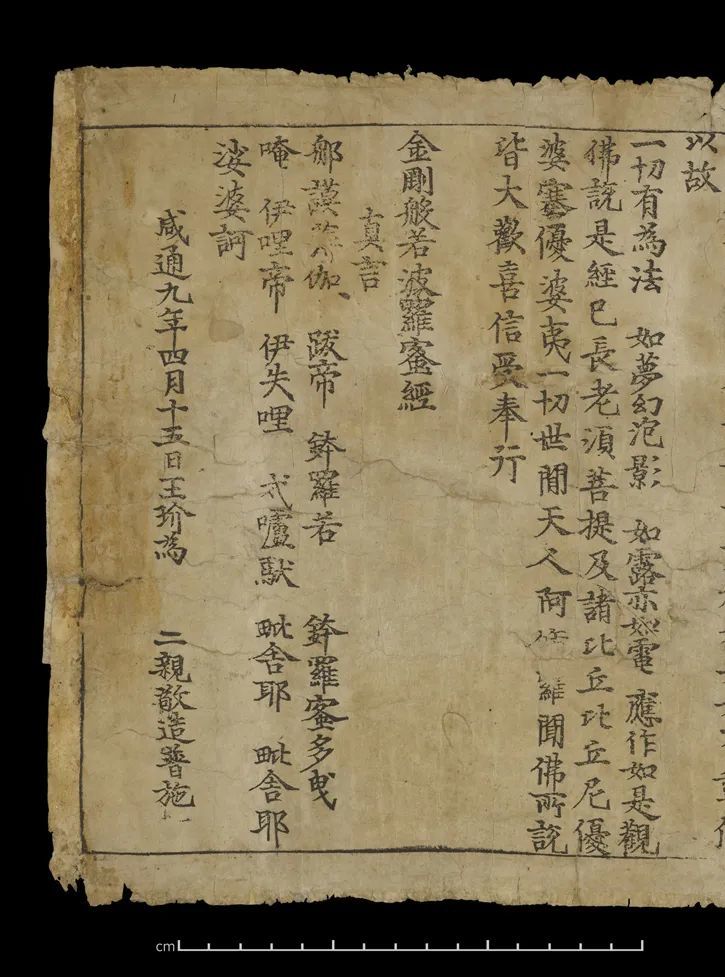 以故
一切有為法 如夢幻泡影 如露亦如電 應作如是觀
佛説是經已長老湏菩提及諸比丘比丘尼優
婆塞優婆夷一切世閒天人阿修羅聞佛所説
皆大歡喜信受奉行
金剛般若波羅蜜經
真言
那謨 伽 跋帝 鉢羅若 鉢羅蜜多曳
唵 伊哩帝 伊失哩 戍嚧馱 毗舍耶 毗舍耶
娑婆訶
咸通九年四月十五日王玠為 二親敬造普施
cm